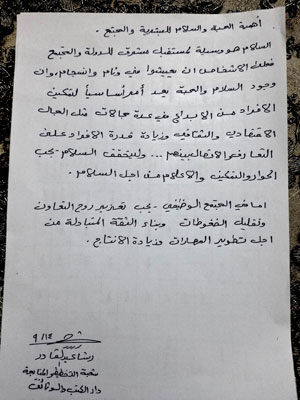 أهمية المحبة والسلام للبشرية والمجتمع .
السلام هو وسيلة لمستقبل مشرق للدولة والمجتمع
الأشخاص ان يعيشوا في وئام وانسجام وان
وجود السلام والمحبة يعد أمر أساسياً لتمكين
الافراد من الابداع في عدة مجالات مثل المجال
الاقتصادي والثقافي وزيادة قدرة الافراد على
التعارف والاتصال بينهم ... وليتحقق السلام يجب
الحوار والتفكير والاعلام من اجل السلام .
اما في المجتمع الوظيفي - يجب تعزيز روح التعاون
وتقليل الضغوطات وبناء الثقة المتبادلة من
اجل تطوير المهارات وزيادة الانتاج .
٩/١٤
رشا عبد القادر
شعبة التخطيط والمتابعة
دار الكتب والوثائق